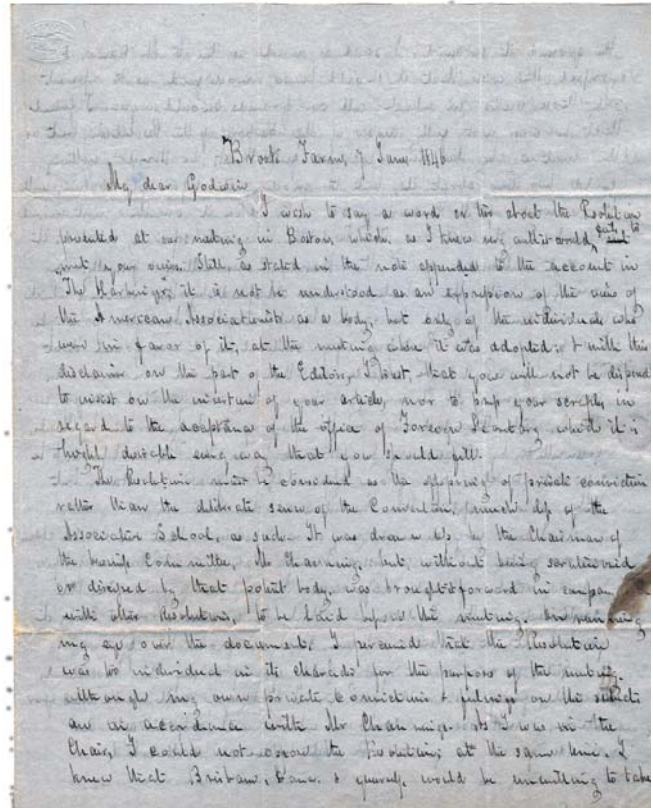 Brook Farm, 7 June, 1846
My dear Godwin
I wish to say a word or two about the Resolution
presented at our meeting in Boston, which, as I knew it would, to
meet your views. Still, as stated in the note appended to the account in
The Harbinger, it is not to be understood as an expression of the view of
the American Associationists as a body, but only of the individuals who
were in favor of it, at the meeting when it was adopted; & with this
disclaimer on the part of the Editors, I trust, that you will not be disposed
to insist on the insertion of your article, nor to keep your scruples in
regard to the acceptance of the office of Foreign Secretary which it is
thought desirable every way that you should fill.
The Resolution must be considered as the offspring of private conviction
rather than the deliberate sense of the Convention, much less of the
Associative School, as such. It was drawn up by the Chairman of
the business Committee, Mr Channing, but, without being scrutinized
or discussed by that potent body, was brought forward in company
with other Resolutions, to be laid before the meeting. On running
my eye over the document, I perceived that the Resolution
was too individual in its character for the purpose of the meeting,
although my own private convictions & feelings on the subject
are in accordance with Mr Channing's. As I was in the
Chair, I could not oppose the Resolution; at the same time, I
knew that Brisbane, Dana, & would be unwilling to take